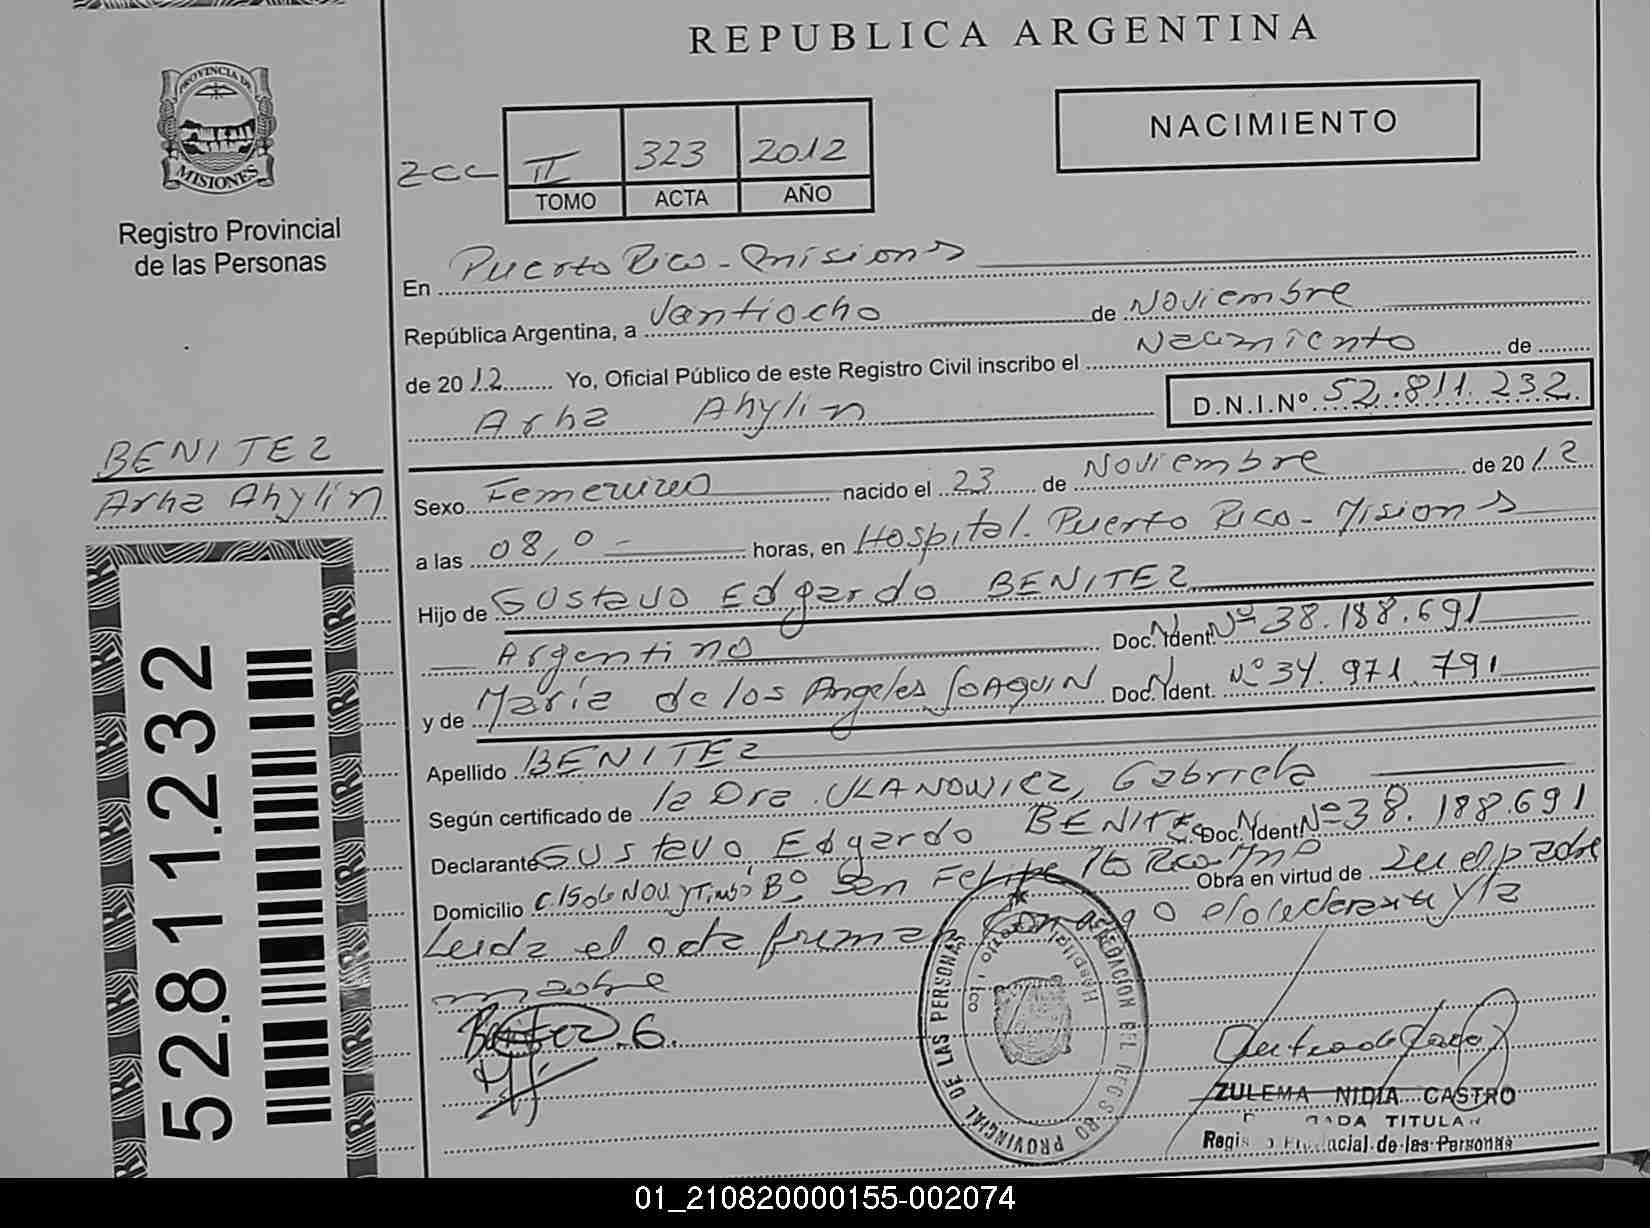 REPUBLICA ARGENTINA
PROVINCIA DE
MISIONES
Registro Provincial
de las Personas
NACIMIENTO
II 323 2012
TOMO ACTA AÑO
En Puerto Rico - Misiones
República Argentina, a Ventiocho de Noviembre
de 2012 Yo, Oficial Público de este Registro Civil inscribo el Nacimiento de
Arha Ahylin D.N.I.Nº 52.811.232
BENITEZ
Arha Ahylin
Sexo Femenino nacido el 23 de Noviembre de 2012
a las 08,0 - horas, en Hospital. Puerto Rico - Misiones
Hijo de Gustavo Edgardo BENITEZ
Argentino Doc. Ident. Nº 38.188.691
y de María de los Angeles JOAQUIN Doc. Ident. Nº 34.971.791
Apellido BENITEZ
Según certificado de la Dra. ULANOWICZ, Gabriela
Declarante Gustavo Edgardo BENITEZ Doc. Ident. Nº 38.188.691
Domicilio Bº San Felipe Pto Rico Obra en virtud de Ser el padre
Leida el acta firman conmigo el declarante y la
madre
Benitez.G.
52.811.232
PROVINCIAL DE LAS PERSONAS
ZULEMA NIDIA CASTRO
TITULAR
Registro Provincial de las Personas
01_210820000155-002074